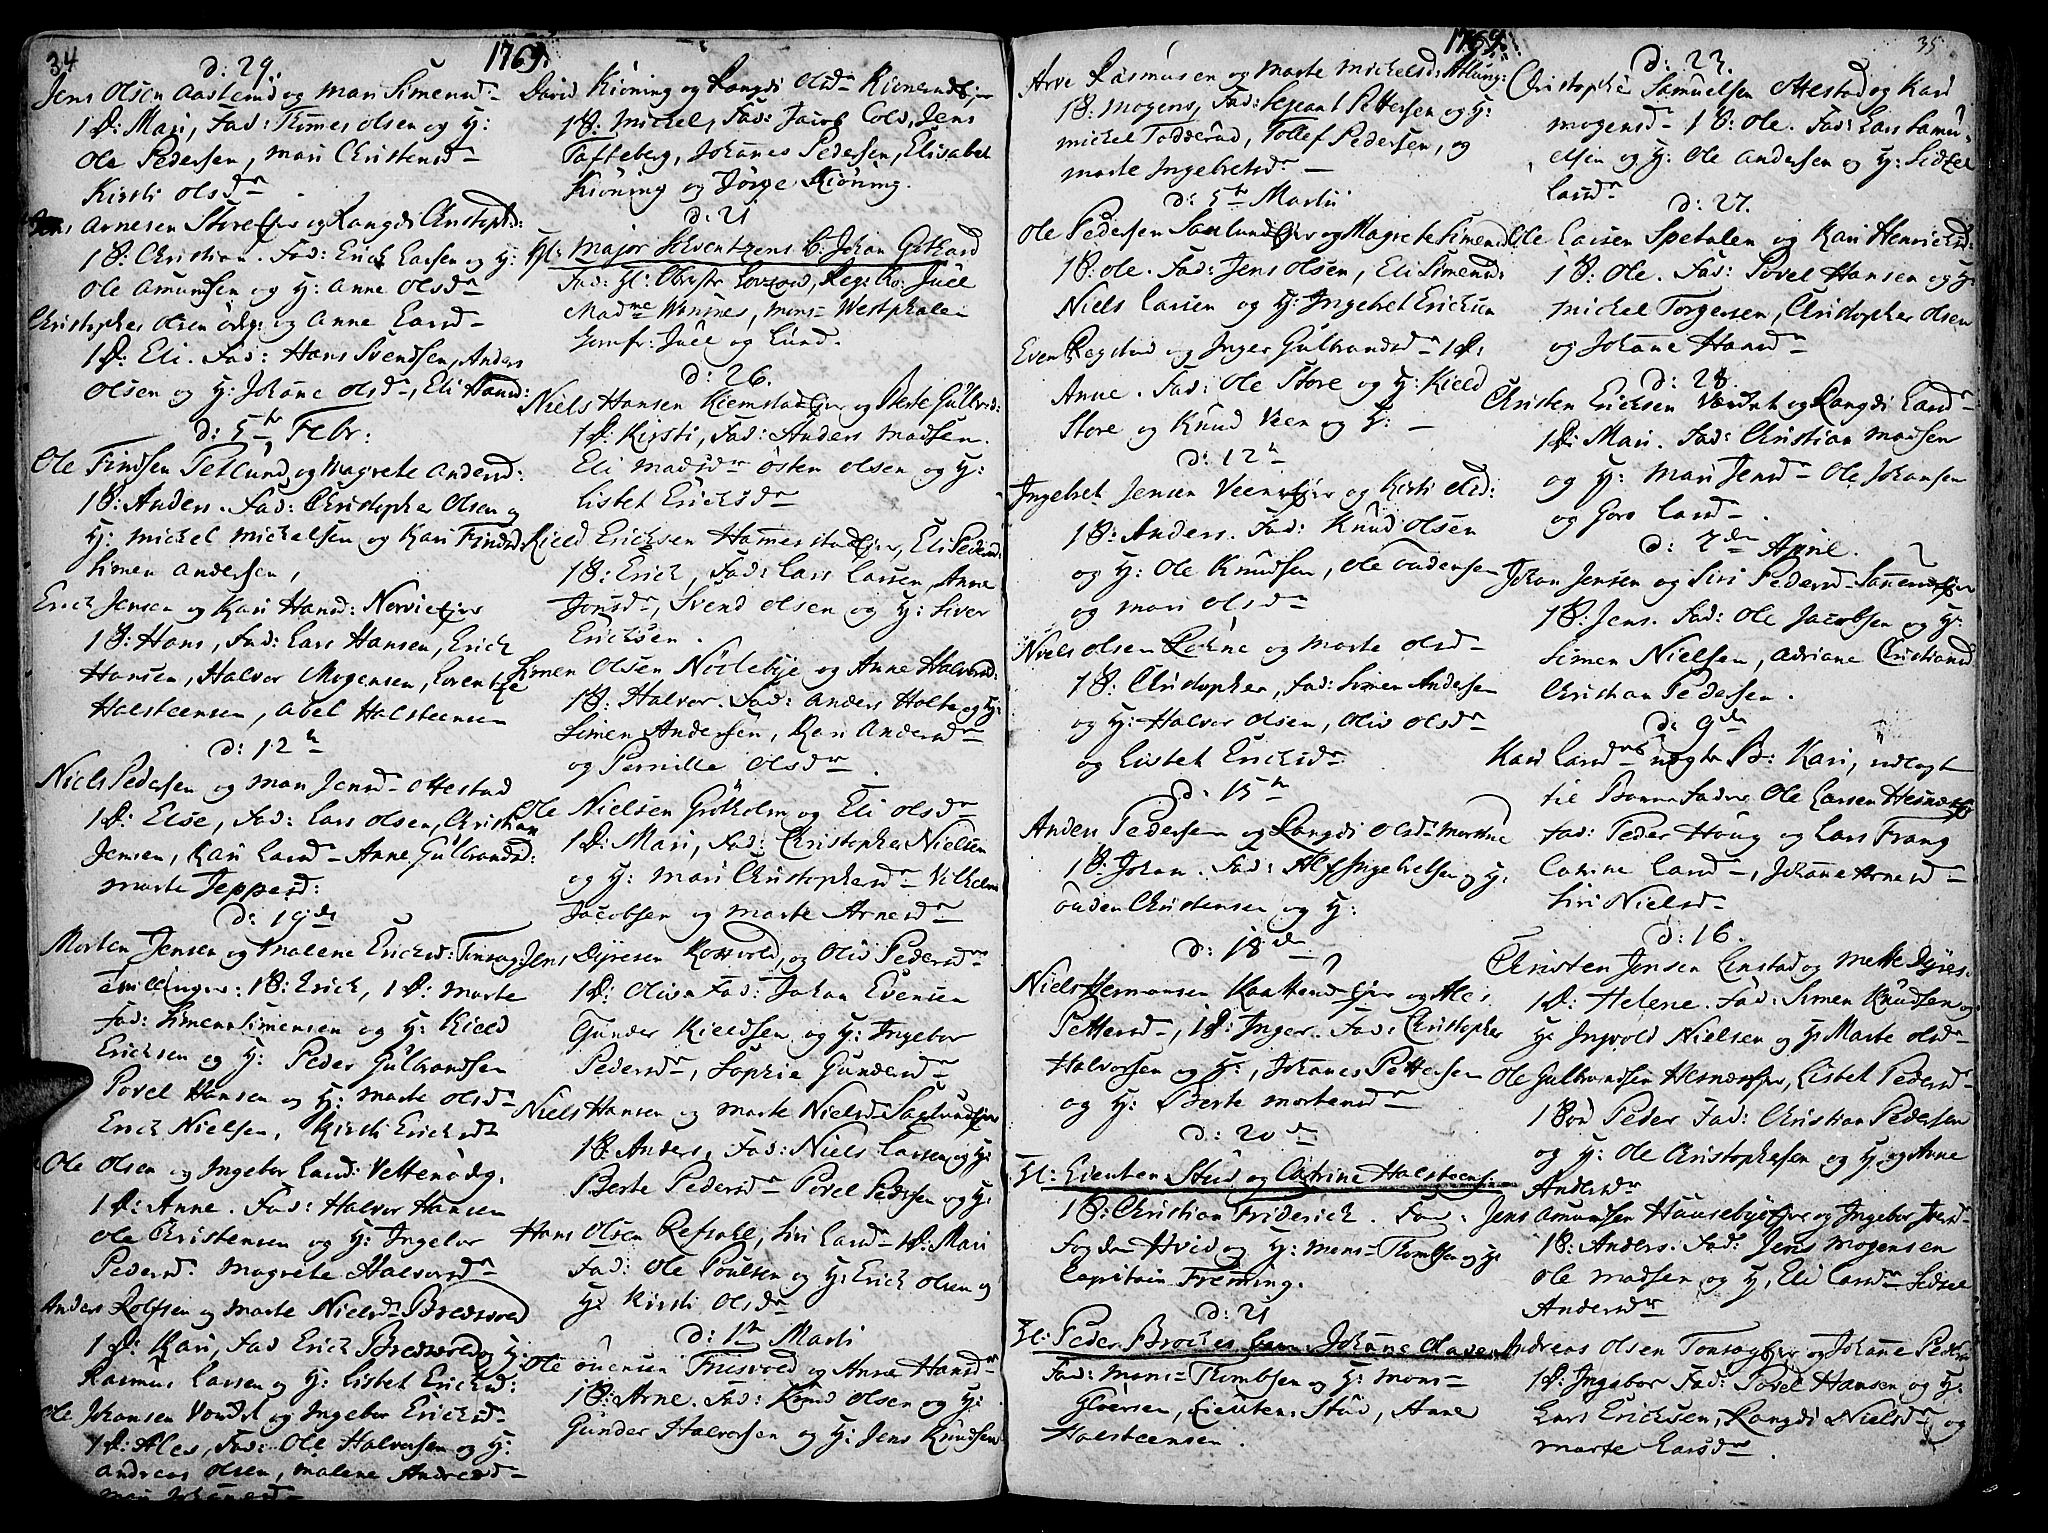 34
1769.
d: 29.
Jens Olsen Aasterud og Mari Simensd
1 D: Mari, Fad: Tømes Olsen og H:
Ole Pedersen, Mari Christensd
Kirsti Olsd
Arnesen Store og Rangdi Christophd:
1 S: Christian. Fad: Erich Larsen og H:
Ole Amundsen og H: Anne Olsd
Christopher Olsen ødeg: og Anne Larsd
1 D: Eli. Fad: Hans Svendsen, Anders
Olsen og H: Johane Olsd, Eli Hansd:
d: 5te Febr:
Ole Findsen Tetlund og Magrete Andersd:
1 S: Anders. Fad: Christopher Olsen og
H: Michel Michelsen og Kari Findsd
Simen Andersen,
Erich Jensen og Kari Hansd: Norvie
1 S: Hans, Fad: Lars Hansen, Erich
Hansen, Halvor Mogensen, Lorentze
Halsteensen, Abel Halsteensen
d: 12te
Niels Pedersen og Mari Jensd Ottestad
1 D: Else, Fad: Lars Olsen, Christian
Jensen, Kari Larsd Anne Gulbrandsd:
Marte Jeppesd:
d: 19de
Morten Jensen og Malene Erichsd: Tonsag:
Tvillinger: 1 S: Erich, 1 D: Marte
Fad: Simen Simensen og H: Kield
Ericksen og H: Peder Gulbrandsen
Povel Hansen og H: Marte Olsd
Erich Nielsen, Kirsti Ericksd
Ole Olsen og Ingebor Larsd: Vettenødg.
1 D: Anne. Fad: Halvor Hansen
Ole Christensen og H: Ingebor
Pedersd: Magrete Halvorsd
Anders Rolfsen og Marte Nielsd Bredvold
1 D: Kari, Fad Erich Bredvold og H:
Rasmus Larsen og H: Lisbet Ericksd:
Ole Johansen Vondst og Ingebor Ericksd
1 D: Ales, Fad: Ole Halvorsen og H:
Andreas Olsen, Malene Andresd
Mari Johansd
David Kiøning og Rangdi Olsd
1 S: Michel, Fad: Jacob Cold, Jens
Tafteberg, Johanes Pedersen, Elisabet
Kiøning og Jørge Kiøning.
d: 21
Hl: Major Schventzens B. Johan Gothard
Fad: Hl: Obrister Lovzow, Reg: Qv: Juel
Madme Wennes, Mons: Westphalen
Jomfr: Juel og Lund.
d: 26.
Niels Hansen Kiemstad og Berte Gulbrd:
1 D: Kirsti, Fad: Anders Madsen.
Eli Madsd Østen Olsen og H:
Lisbet Ericksd
Kield Ericksen Hamerstad, Eli Pedersd:
1 S: Erich, Fad: Lars Larsen, Anne
Jonsd, Svend Olsen og H: Siver
Ericksen.
Simen Olsen Nøslebye og Anne Halvorsd:
1 S: Halvor. Fad: Anders Holte og H:
Simen Andersen, Kari Andersd
og Pernille Olsd.
Ole Nielsen Grøtholm og Eli Olsd
1 D: Mari, Fad: Christopher Nielsen
og H: Mari Christophersd Vilhelm
Jacobsen og Marte Arnesd
Jens Dyresen Kossvold, og Oliv Pedersd
1 D: Oliv. Fad: Johan Evensen
Gunder Kieldsen og H: Ingebor
Pedersd, Sophie Gundersd
Niels Hansen og Marte Nielsd Saxlund
1 S: Anders, Fad: Niels Larsen og H:
Berte Pedersd Povel Pedersen og H:
Hans Olsen Refsahl, Siri Larsd 1 D: Mari
Fad: Ole Poulsen og H: Erich Olsen og
H: Kirsti Olsd
d: 1te Marti
Ole Svensen Trosvold og Anne Hansd
1 S: Arne. Fad: Knud Olsen og H:
Gunder Halvorsen og H: Jens Knudsen
1769.
35
Arve Rasmusen og Marte Michelsd: Atlung:
1 S: Mogens, Fad: Sejeant Pettersen og H:
Michel Todderud, Tollef Pedersen, og
Marte Ingebretsd
d: 5te Martii
Ole Pedersen Saxlund og Magrete Simensd
1 S: Ole. Fad: Jens Olsen, Eli Simensd:
Niels Larsen og H: Ingebret Ericksen
Even Regstad og Inger Gulbrandsd 1 D:
Anne. Fad: Ole Store og H: Kield
Store og Knud Veen og H:
d: 12te
Ingebret Jensen Veen og Kirsti Olsd:
1 S: Anders. Fad: Knud Olsen
og H: Ole Knudsen, Ole Oudensen
og Mari Olsd
Niels Olsen Rohne og Marte Olsd
1 S: Christopher, Fad: Simen Andersen
og H: Halvor Olsen, Oliv Olsd
og Lisbet Ericksd
d: 15te
Anders Pedersen og Rangdi Olsd
1 S. Johan. Fad: Alf Ingebretsen og H:
Ouden Christensen og H:
d: 18de
Niels Hermansen Kaatterud og Ales
Pettersd, 1 D: Inger. Fad: Christopher
Halvorsen og H:, Johanes Pettersen
og H: Berte Mortensd
d: 20de
Hl: Lieuten Stud og Catrine Halsteens:
1 S: Christian Friderich. Fad:
Fogden Hvid og H: Mons: Thombsen og H:
Capitain Fremming.
d: 21
Hl: Peder Broches Barn Johane Olave
Fad: Mons: Thombsen og H: Mons:
Gløersen, Lieuten: Stud, Anne
Halsteensen.
d: 23.
Christopher Samuelsen Ottestad og Kari
Mogensd 1 S: Ole. Fad: Lars Samu-
elsen og H: Ole Andersen og H: Sidzel
Larsd
d: 27.
Ole Larsen Spetalen og Kari Henrichsd:
1 S: Ole. Fad: Povel Hansen og H:
Michel Torgersen, Christopher Olsen
og Johane Hansd
d: 28.
Christen Ericksen og Rangdi Larsd
1 D: Mari. Fad: Christian Madsen
og H: Mari Jensd Ole Johansen
og Goro Larsd.
d: 2den April.
Johan Jensen og Siri Pedersd
1 S: Jens. Fad: Ole Jacobsen og H:
Simen Nielsen, Adriane Christiansd
Christian Pedersen.
d: 9de
Kari Larsd uægte B: Kari, udlagt
til Barne Fader Ole Larsen
Fad: Peder Houg og Lars Frang
Catrine Larsd, Johane Arnesd
Siri Nielsd
d: 16.
Christen Jensen Linstad og Mette Dyres:
1 D: Helene. Fad: Simen Knudsen og
H: Ingvold Nielsen og H: Marte Olsd
Ole Gulbrandsen Hesnes, Lisbet Pedersd
1 Søn Peder Fad: Christian Pedersen
og H: Ole Christophersen og H. og Anne
Andersd
Jens Amundsen Hausebye og Ingebor Iversd
1 S: Anders. Fad: Jens Mogensen
Ole Madsen og H, Eli Larsd Sidsel
Andersd
Andreas Olsen Tonsag og Johane Peders
1 D: Ingebor Fad: Povel Hansen og H:
Lars Ericksen, Rangdi Nielsd, og
Marte Larsd.